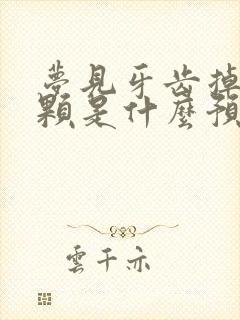 夢見牙齒掉
顆是什麼預
雲千亦